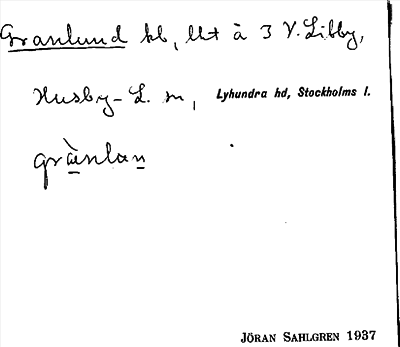 Granlund hb, lht å 3 V. Libby,
Husby-L. sn, Lyhundra hd, Stockholms l.
grànlan
JÖRAN SAHLGREN 1937